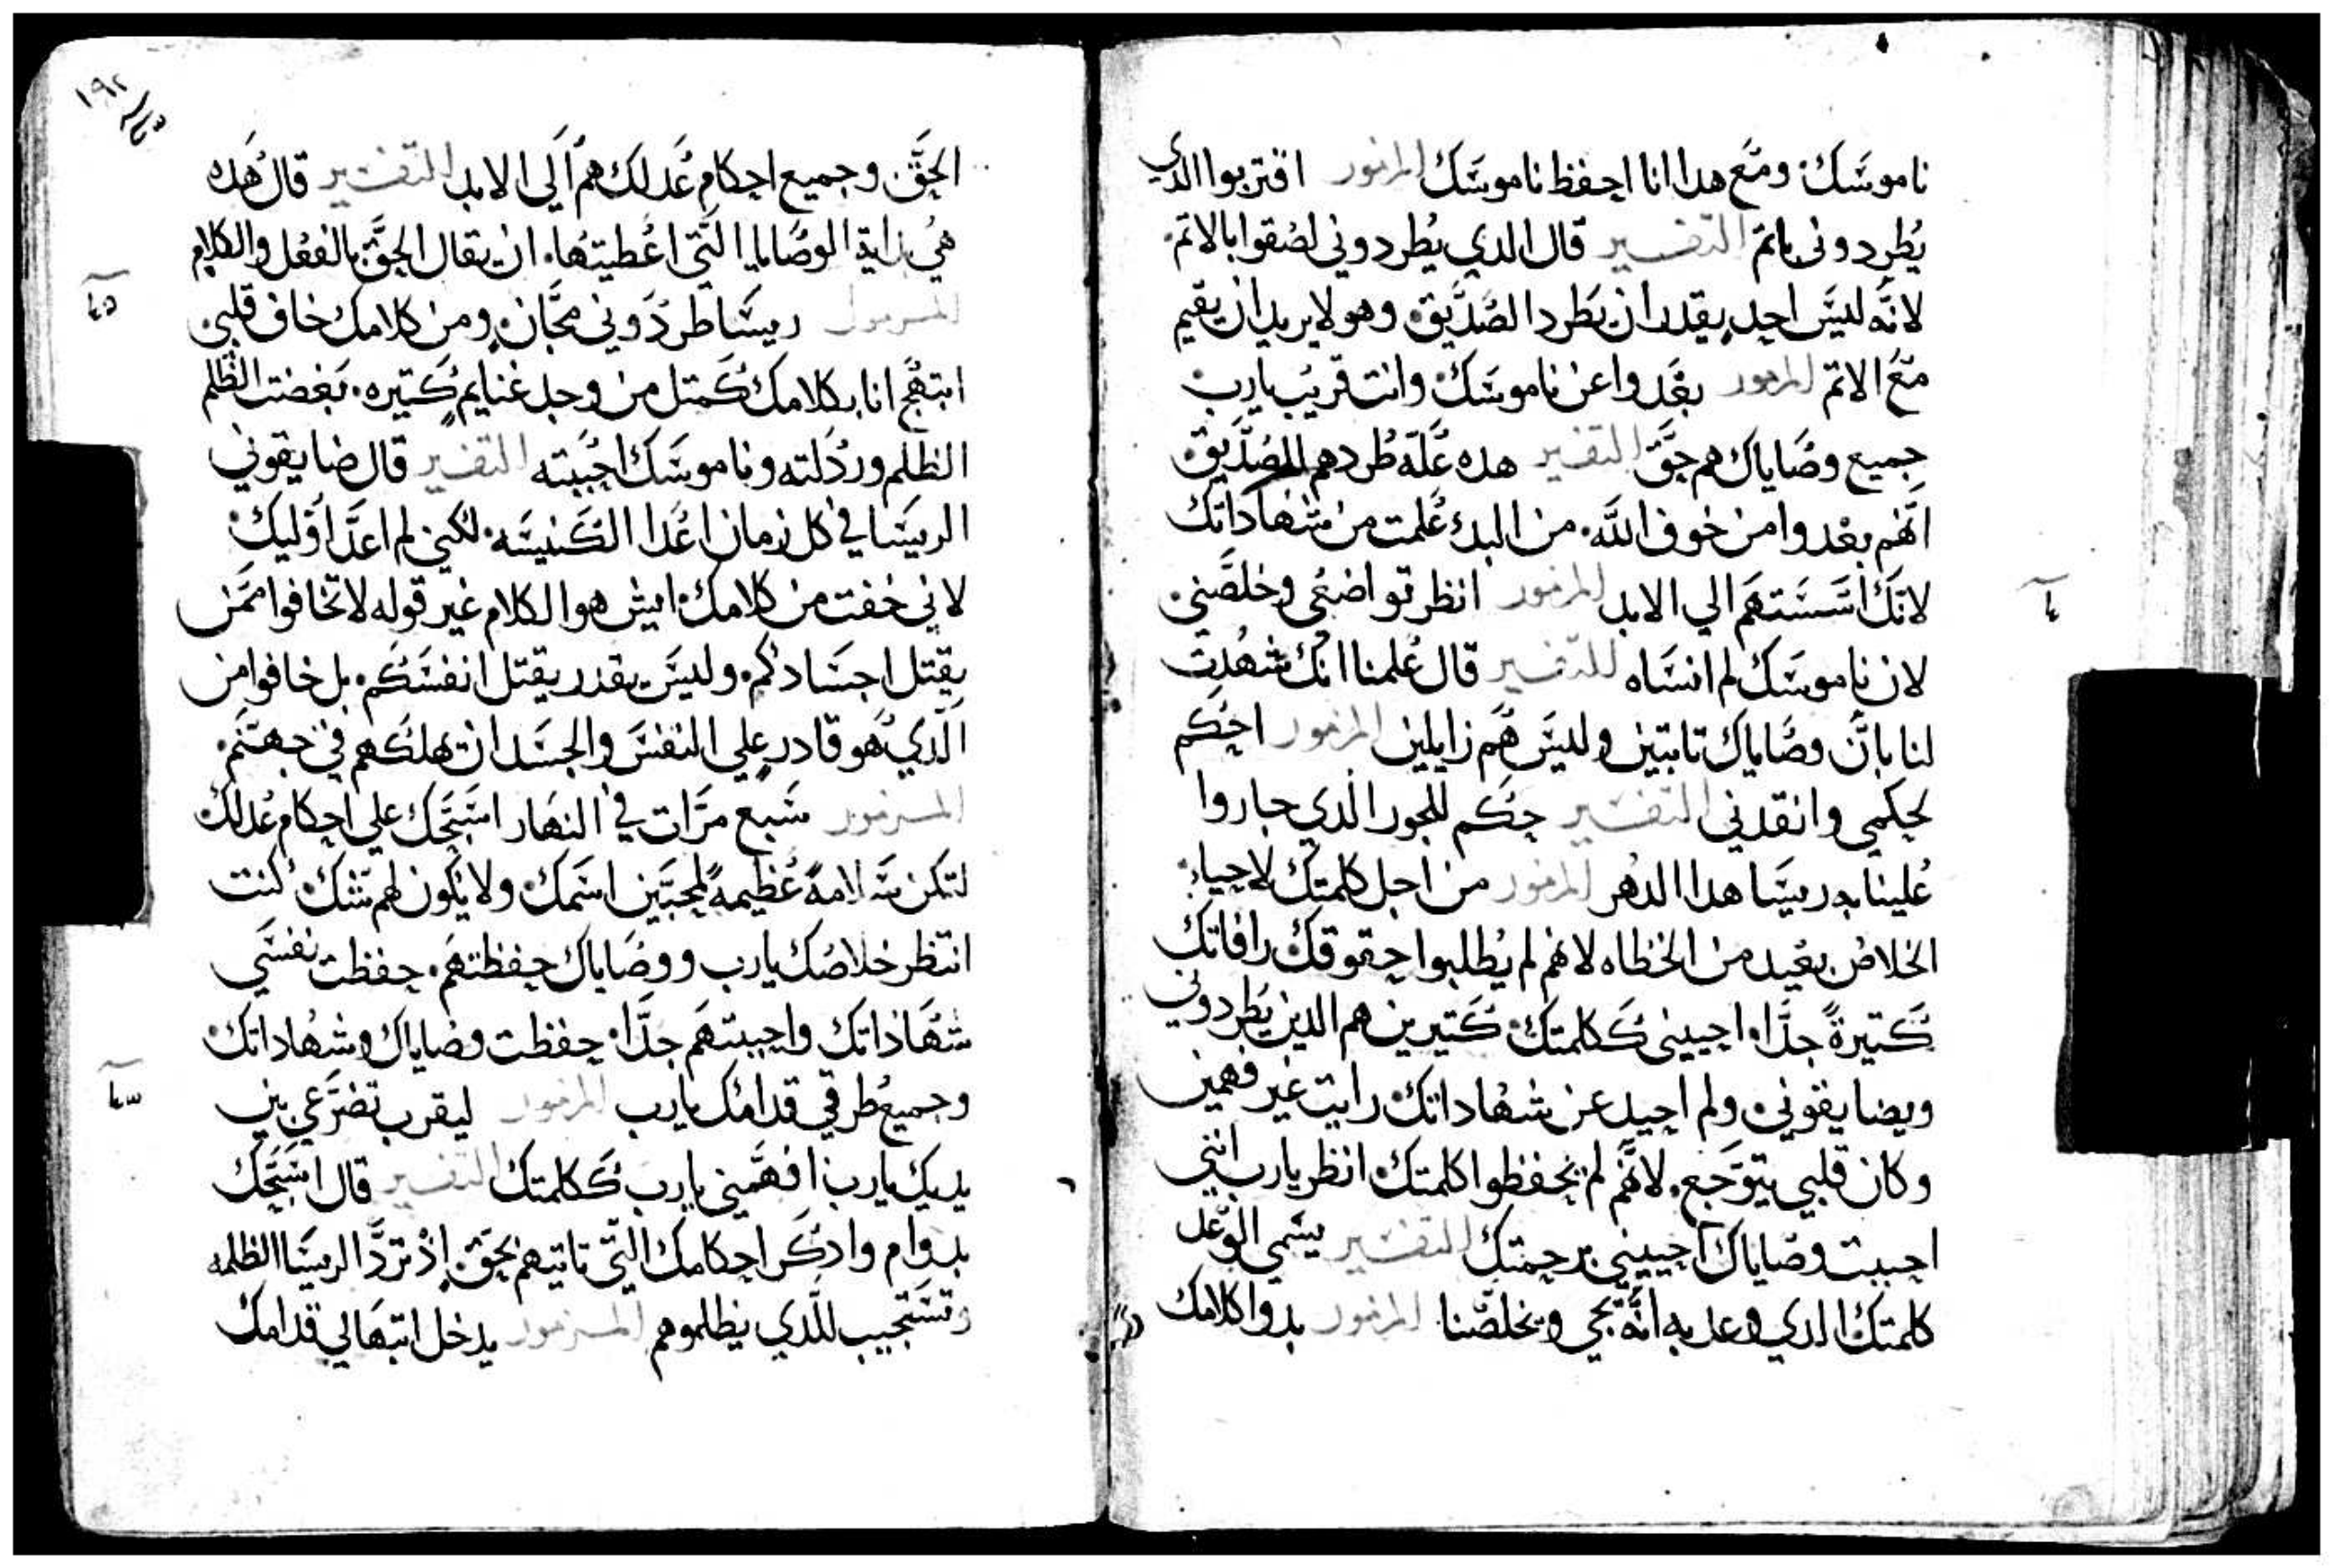 ناموسك ومع هدا انا احفظ ناموسك المزمور اقتربوا الدي
يطردوني باتم التفسير قال الدي يطردوني لصقوا بالاتم
لانه ليس احد يقدر ان يطرد الصديق وهو لا يريد ان يقيم
مع الاتم المزمور بعدوا عن ناموسك وانت قريب يارب
جميع وصاياك هم حق التفسير هده علة طردهم للصديق
انهم بعدوا من خوف الله من البدء علمت من شهاداتك
لانك اسستهم الي الابد المزمور انظر تواضعي وخلصني
لان ناموسك لم انساه التفسير قال علمنا انك شهدت
لنا بان وصاياك تابتين وليس هم زايلين المزمور احكم
لحكمي وانقدني التفسير حكم للجور الدي جاروا
علينا به ريسا هدا الدهر المزمور من اجل كلمتك لاحياء
الخلاص بعيد من الخطاه لانهم لم يطلبوا حقوقك رافاتك
كتيرة جدا احييني ككلمتك كتيرين هم الدين يطردوني
ويضايقوني ولم احيد عن شهاداتك رايت غير فهمين
وكان قلبي يتوجع لانهم لم يحفظوا كلمتك انظر يارب انني
احببت وصاياك احييني برحمتك التفسير يسمي الوعد
كلمتك الدي وعد به انه يجي ويخلصنا المزمور بدوا كلامك
١٩٢
الحق وجميع احكام عدلك هم الي الابد التفسير قال هده
هي بداية الوصايا التي اعطيتها ان يقال الحق بالفعل والكلام
المزمور ريسا طردوني مجان ومن كلامك خاف قلبي
ابتهج انا بكلامك كمتل من وجد غنايم كتيره بغضت الظلم
الظلم وردلته وناموسك احببته التفسير قال ضايقوني
الريسا في كل زمان اعدا الكنيسه لكني لم اعد اوليك
لاني خفت من كلامك ايش هو الكلام غير قوله لا تخافوا ممن
يقتل اجسادكم وليس يقدر يقتل انفسكم بل خافوا من
الدي هو قادر علي النفس والجسد ان يهلكهم في جهنم
المزمور سبع مرات في النهار اسبحك علي احكام عدلك
لتكن سلامة عظيمة لمحبين اسمك ولا يكون لهم شك كنت
انتظر خلاصك يارب ووصاياك حفظتهم حفظت نفسي
شهاداتك واحببتهم جدا حفظت وصاياك وشهاداتك
وجميع طرقي قدامك يارب المزمور ليقرب تضرعي بين
يديك يارب افهمني يارب ككلمتك التفسير قال اسبحك
بدوام وادكر احكامك التي تاتيهم بحق اد ترد الريسا الظلمه
وتستجيب للدي يظلموهم المزمور يدخل ابتهالي قدامك